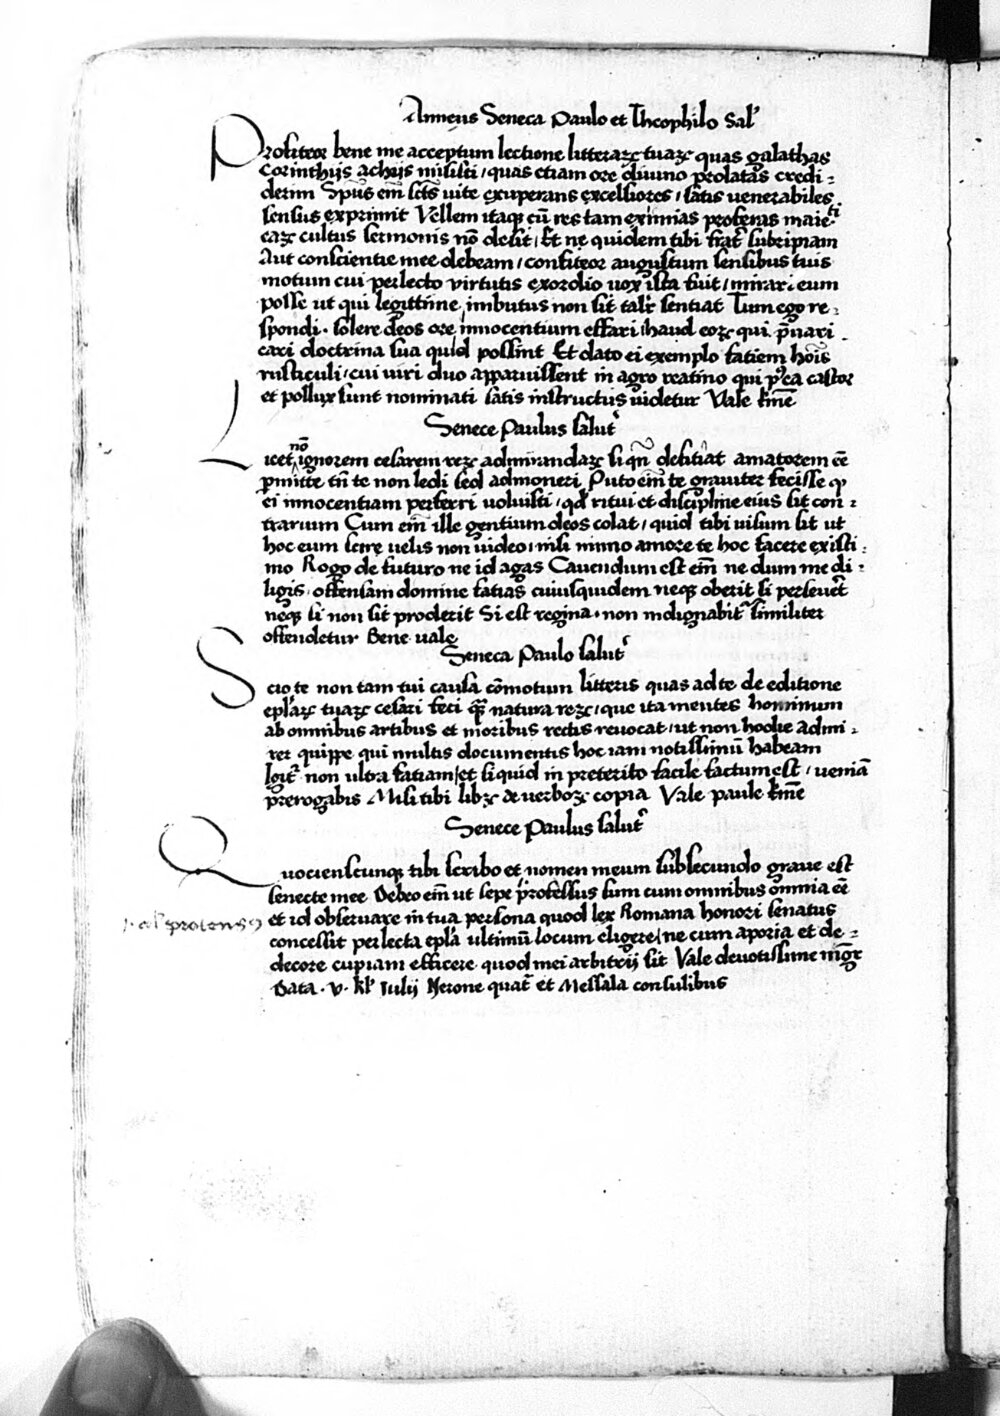 Anneus Seneca Paulo et Theophilo Sal'
Profiteor bene me acceptum lectione litteraꝝ tuaꝝ quas galathas
Corinthijs achijs misisti / quas etiam ore diuino prolatas credi-
derim Sp̄us em̄ sc̄ts uite exuperans excelsiores / satis venerabiles
sensus exprimit Vellem itaqꝫ cū res tam eximias proferas maiesti
caꝝ cultus sermonis nō desit / Et ne quidem tibi frat̄ subripiam
Aut conscientie mee debeam / confiteor augustum sensibus tuis
motum cui perlecto virtutis exordio uox ista fuit / mirari eum
posse ut qui legittime imbutus non sit tal'r sentiat Tum ego re-
spondi . solere deos ore innocentium effari / haud eoꝝ qui p̄uari
cari doctrina sua quid possint Et dato ei exemplo fatiem hoīs
rusticuli / cui viri duo apparuissent in agro reatino qui p'ea castor
et pollux sunt nominati satis instructus uidetur Vale
Senece Paulus salut'
Licet nō ignorem cesarem reꝝ admirandaꝝ si qn̄ defitiat amatorem eē
pmitte tn̄ te non ledi sed admoneri Puto em̄ te grauiter fecisse ꝙ
ei innocentiam perferri uoluisti / qd' ritui et discipline eius sit con-
trarium Cum em̄ ille gentium deos colat / quid tibi uisum sit ut
hoc eum scire uelis non uideo / nisi nimio amore te hoc facere existi-
mo Rogo de futuro ne id agas Cauendum est em̄ ne dum me di-
ligis / offensam domine fatias cuiusquidem neqꝫ oberit si perseuer̄t
neqꝫ si non sit proderit Si est regina . non indignabit' similiter
offendetur Bene vale
Seneca Paulo salut'
Scio te non tam tui causa cōmotum litteris quas ad te de editione
ep̄laꝝ tuaꝝ cesari feci qꝫ natura reꝝ / que ita mentes hominum
ab omnibus artibus et moribus rectis reuocat / ut non hodie admi-
rer quippe qui multis documentis hoc iam notissimū habeam
Igit' non ultra fatiam / et si quid in preterito facile factum est / ueniā
prerogabis Misi tibi libꝝ de uerboꝝ copia Vale paule
Senece Paulus salut'
Quociensc̄unqꝫ tibi scribo et nomen meum subsecundo graue est
senecte mee Debeo em̄ ut sepe professus sum cum omnibus omnia eē
et id obseruare in tua persona quod lex Romana honori senatus
concessit perlecta ep̄la ultimū locum eligere / ne cum aporia et de-
decore cupiam efficere quod mei arbitrij sit Vale deuotissime mgr̄
Data . v . kl' Iulij Nerone quat̄ et Messala consulibus